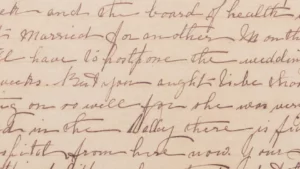 ek and the board of health
t's married for another 1/2 month
ll have to postpone the weddin
weeks. But you aught to be shou
ng on so well for she was ver
d in the Valley there is fi
spital from here now. Your